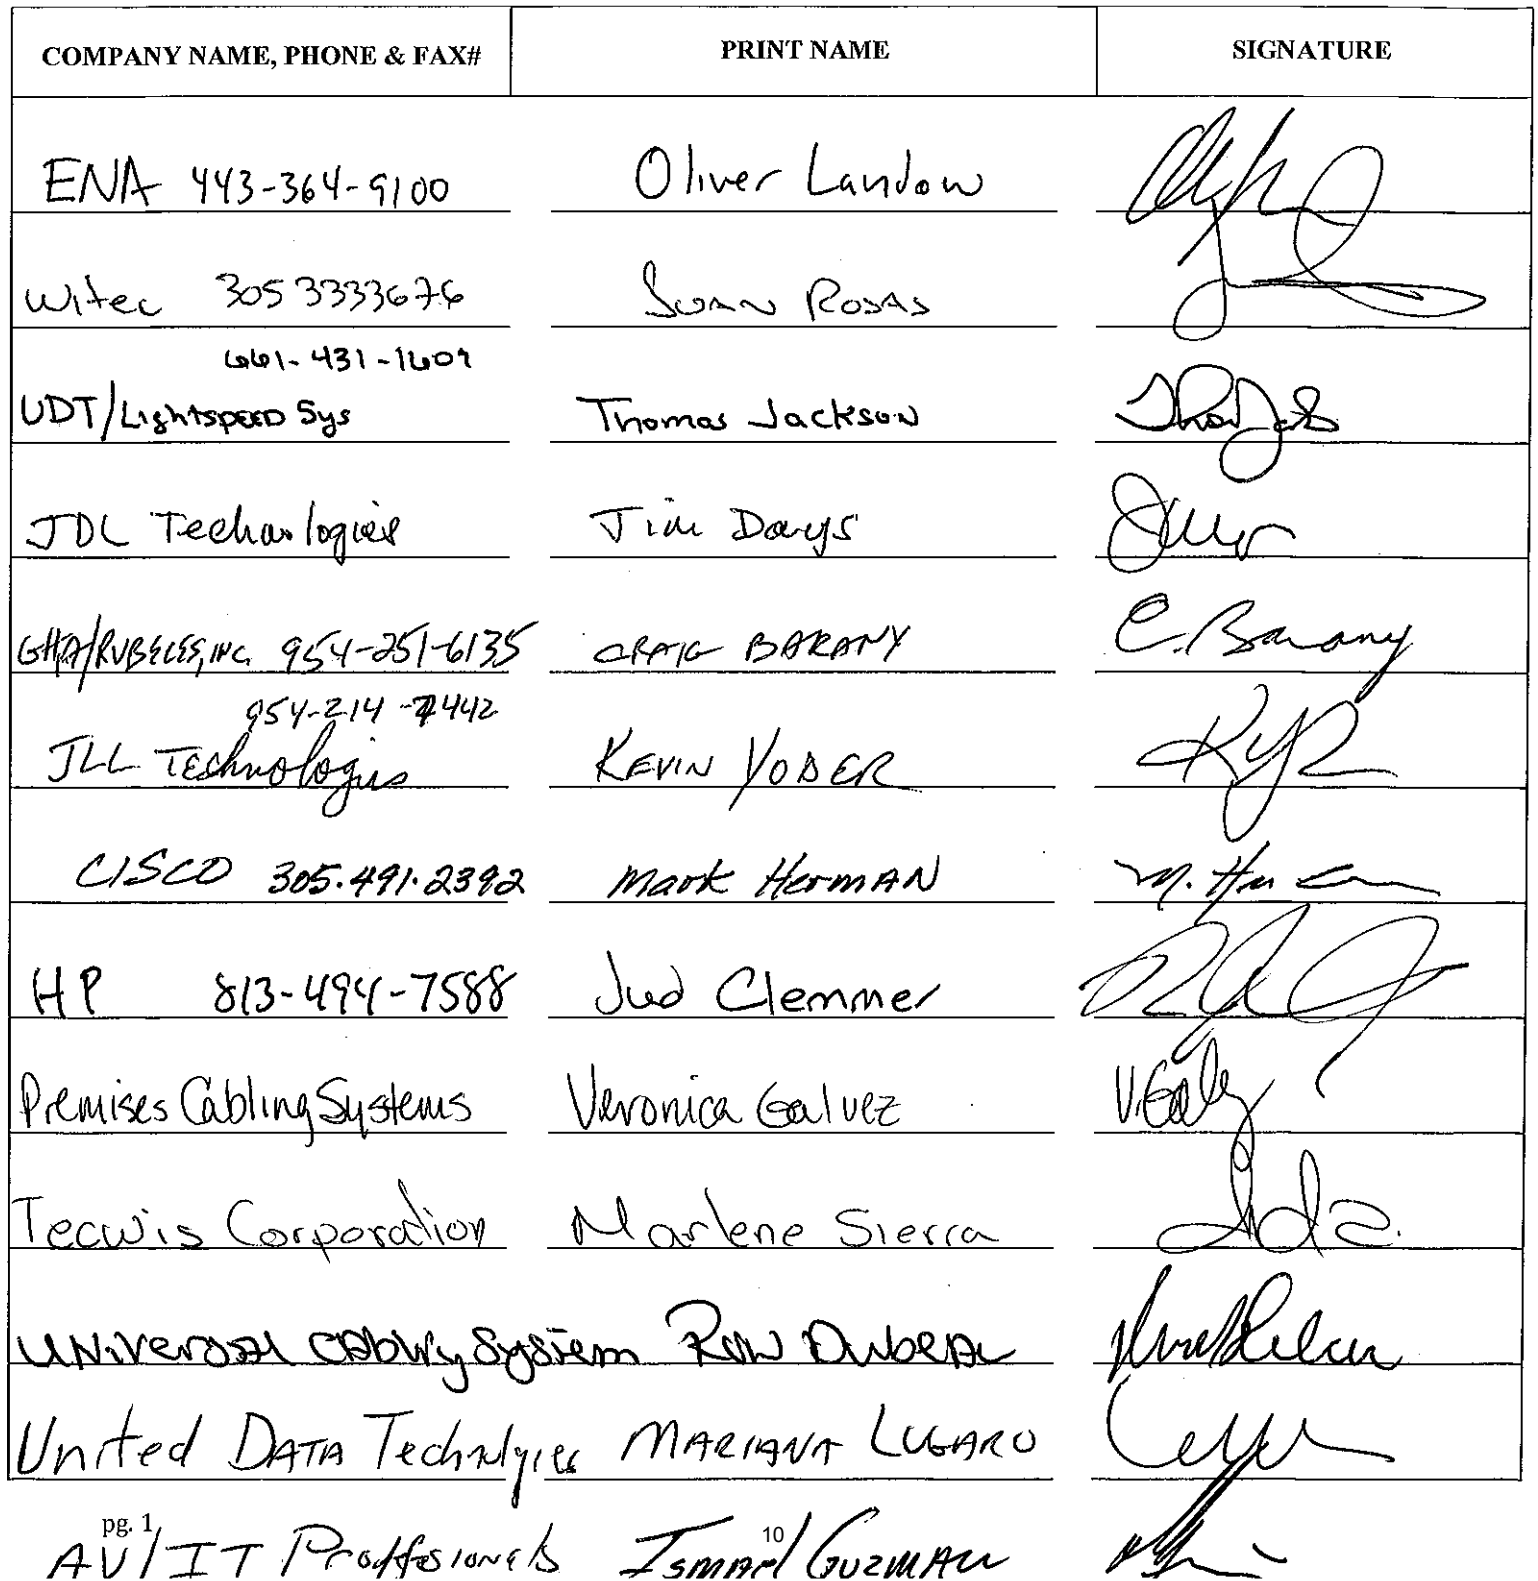 COMPANY NAME, PHONE & FAX# PRINT NAME SIGNATURE
ENA 443-364-9100 Oliver Landow
Witec 305 3333676 Juan Rosas
661-431-1609
UDT/Lightspeed Sys Thomas Jackson
JDL Technologies Tim Days
GHA/RUBELES, INC. 954-251-6135 CRAIG BARANY C. Barany
954-214-7442
JLL Technologies KEVIN YODER
CISCO 305.491.2392 Mark HermAN M. Her
HP 813-494-7588 Jud Clemmer
Premises Cabling Systems Veronica Galvez V. Galvez
Tecwis Corporation Marlene Sierra
UNiversal CAbling System Ron Dubeau
United DATA Technolgies MARIANA LUGARO
pg. 1 10
AV/IT Proffesionels Ismael GUZMAN